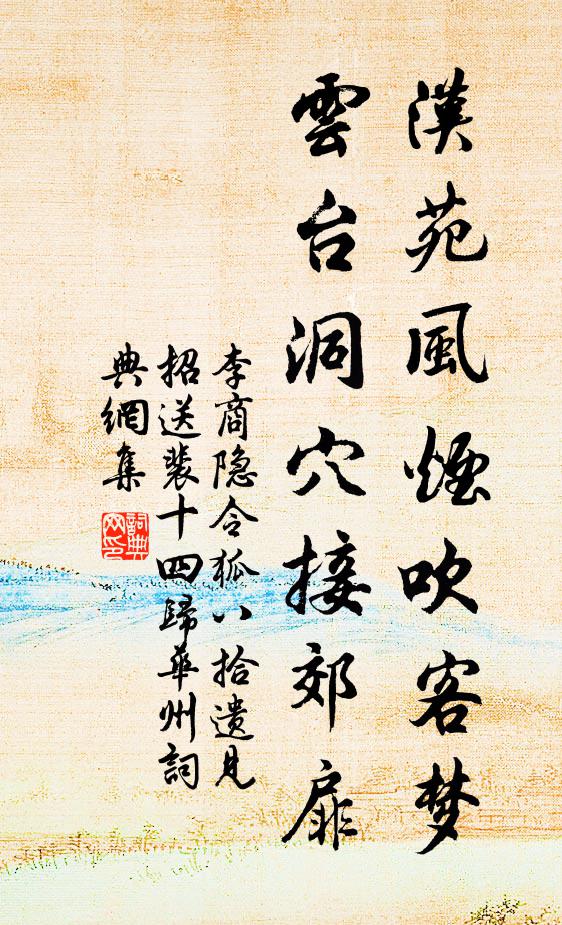 漢苑風煙吹客梦
雲台洞穴接郊扉
李商隐令狐八拾遺見
招送裴十四歸華州詞
典網集
詞典
网印